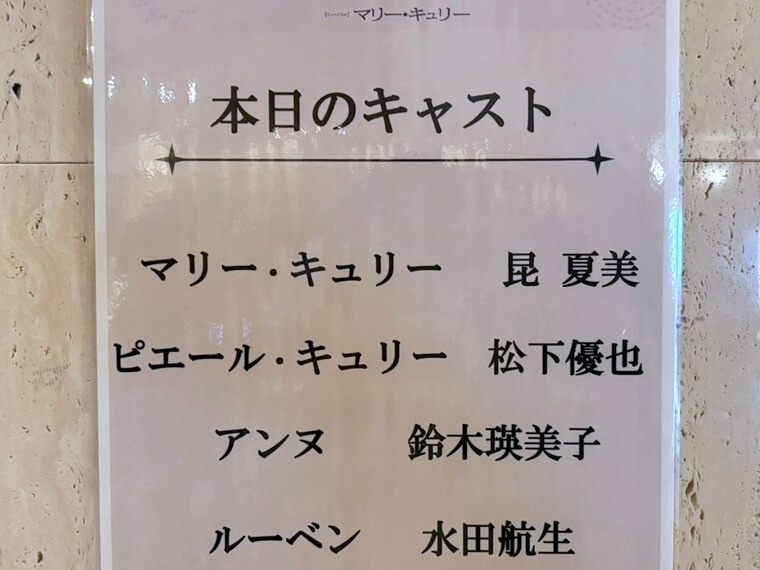 マリー・キュリー
本日のキャスト
マリー・キュリー 昆 夏美
ピエール・キュリー 松下優也
アンヌ 鈴木瑛美子
ルーベン 水田航生